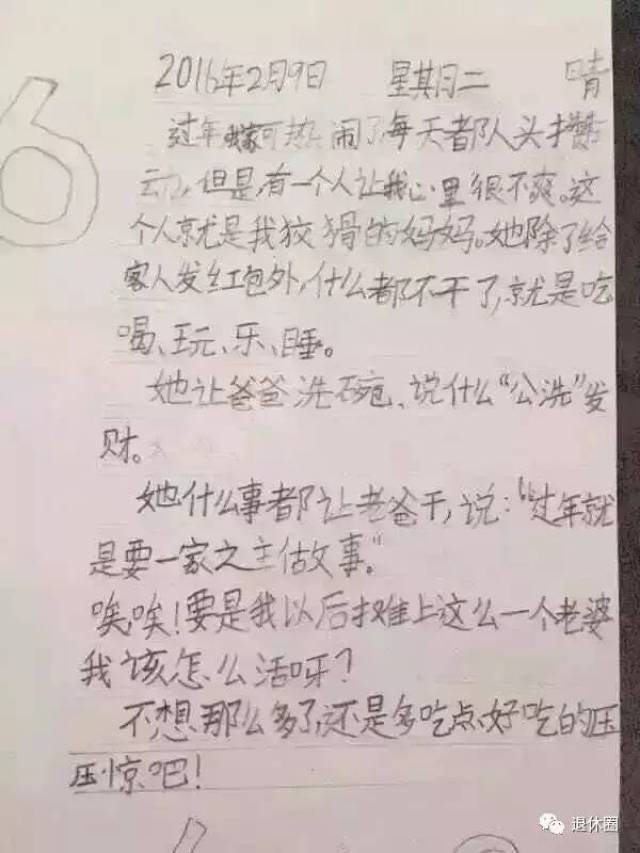 2016年2月9日 星期二 晴
过年我家可热闹了,每天都人头攒
动,但是,有一个人让我心里很不爽。这
个人就是我狡猾的妈妈。她除了给
客人发红包外,什么都不干了,就是吃
喝、玩、乐、睡。
她让爸爸洗碗、说什么“公洗”发
财。
她什么事都让老爸干,说:“过年就
是要一家之主做事。”
唉,唉!要是我以后摊上这么一个老婆
我该怎么活呀?
不想那么多了,还是多吃点好吃的压
压惊吧!
退休圈